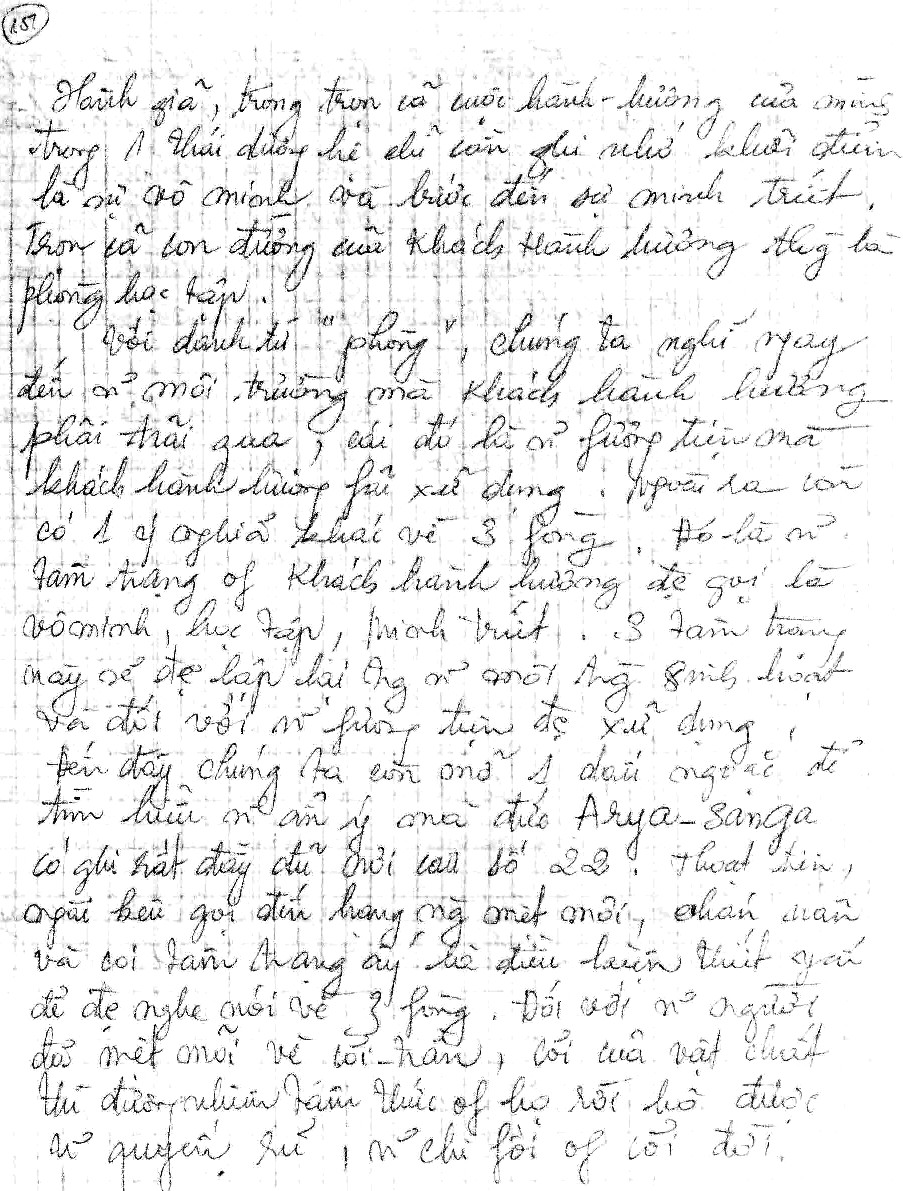 151
Hành giả, trong trọn cả cuộc hành-hương của mình
trong 1 thái dương hệ chỉ cần ghi nhớ khởi điểm
là sự vô minh và bước đến sự minh triết.
Trọn cả con đường của Khách Hành hương là
phòng học tập.
Với danh từ "phòng", chúng ta nghĩ ngay
đến môi trường mà Khách hành hương
phải trải qua, cái đó là fương tiện mà
khách hành hương fải xử dụng. Ngoài ra còn
có 1 ý nghĩa khác về 3 fòng. Đó là
tâm trạng of Khách hành hương đc gọi là
vô minh, học tập, Minh triết. 3 tâm trạng
này sẽ đc lập lại tng môi trg sinh hoạt
và đối với fương tiện đc xử dụng,
đến đây chúng ta còn mở 1 dấu ngoặc để
tìm hiểu ẩn ý mà đức Arya-Sanga
có ghi rất đầy đủ nơi câu số 22. Thoạt tiên,
ngài kêu gọi đến hạng ng mệt mỏi, chán nản
và coi tâm trạng ấy là điều kiện thiết yếu
để đc nghe nói về 3 fòng. Đối với người
đã mệt mỏi về cõi-trần, cõi của vật chất
thì đương nhiên tâm thức of họ rời bỏ được
quyến rũ, chi fối of cõi đời.